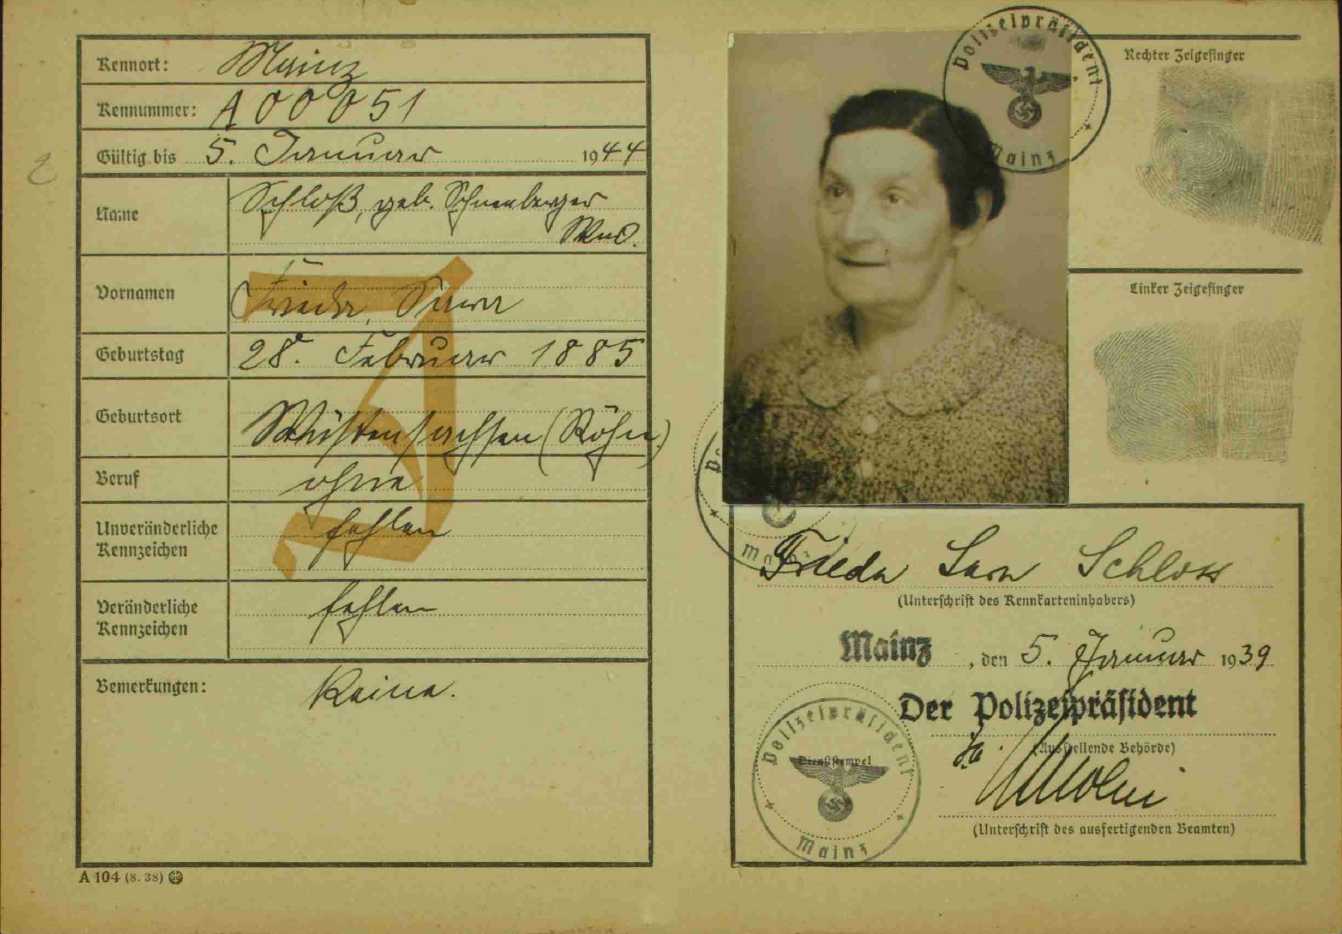 Kennort: Mainz
Kennummer: A00051
Gültig bis 5. Januar 1944
Name Schloß, geb. Schneeberger
Wwe.
Vornamen Frieda, Sara
Geburtstag 28. Februar 1885
Geburtsort Wüstensachsen (Röhn)
Beruf ohne
Unveränderliche
Kennzeichen fehlen
Veränderliche
Kennzeichen fehlen
Bemerkungen: Keine.
J
A 104 (8. 38)
2
Polizeipräsident
Mainz
Rechter Zeigefinger
Linker Zeigefinger
Frieda Sara Schloss
(Unterschrift des Kennkarteninhabers)
Mainz, den 5. Januar 1939
Der Polizeipräsident
(Ausstellende Behörde)
Polizeipräsident
Dienststempel
Mainz
(Unterschrift des ausfertigenden Beamten)